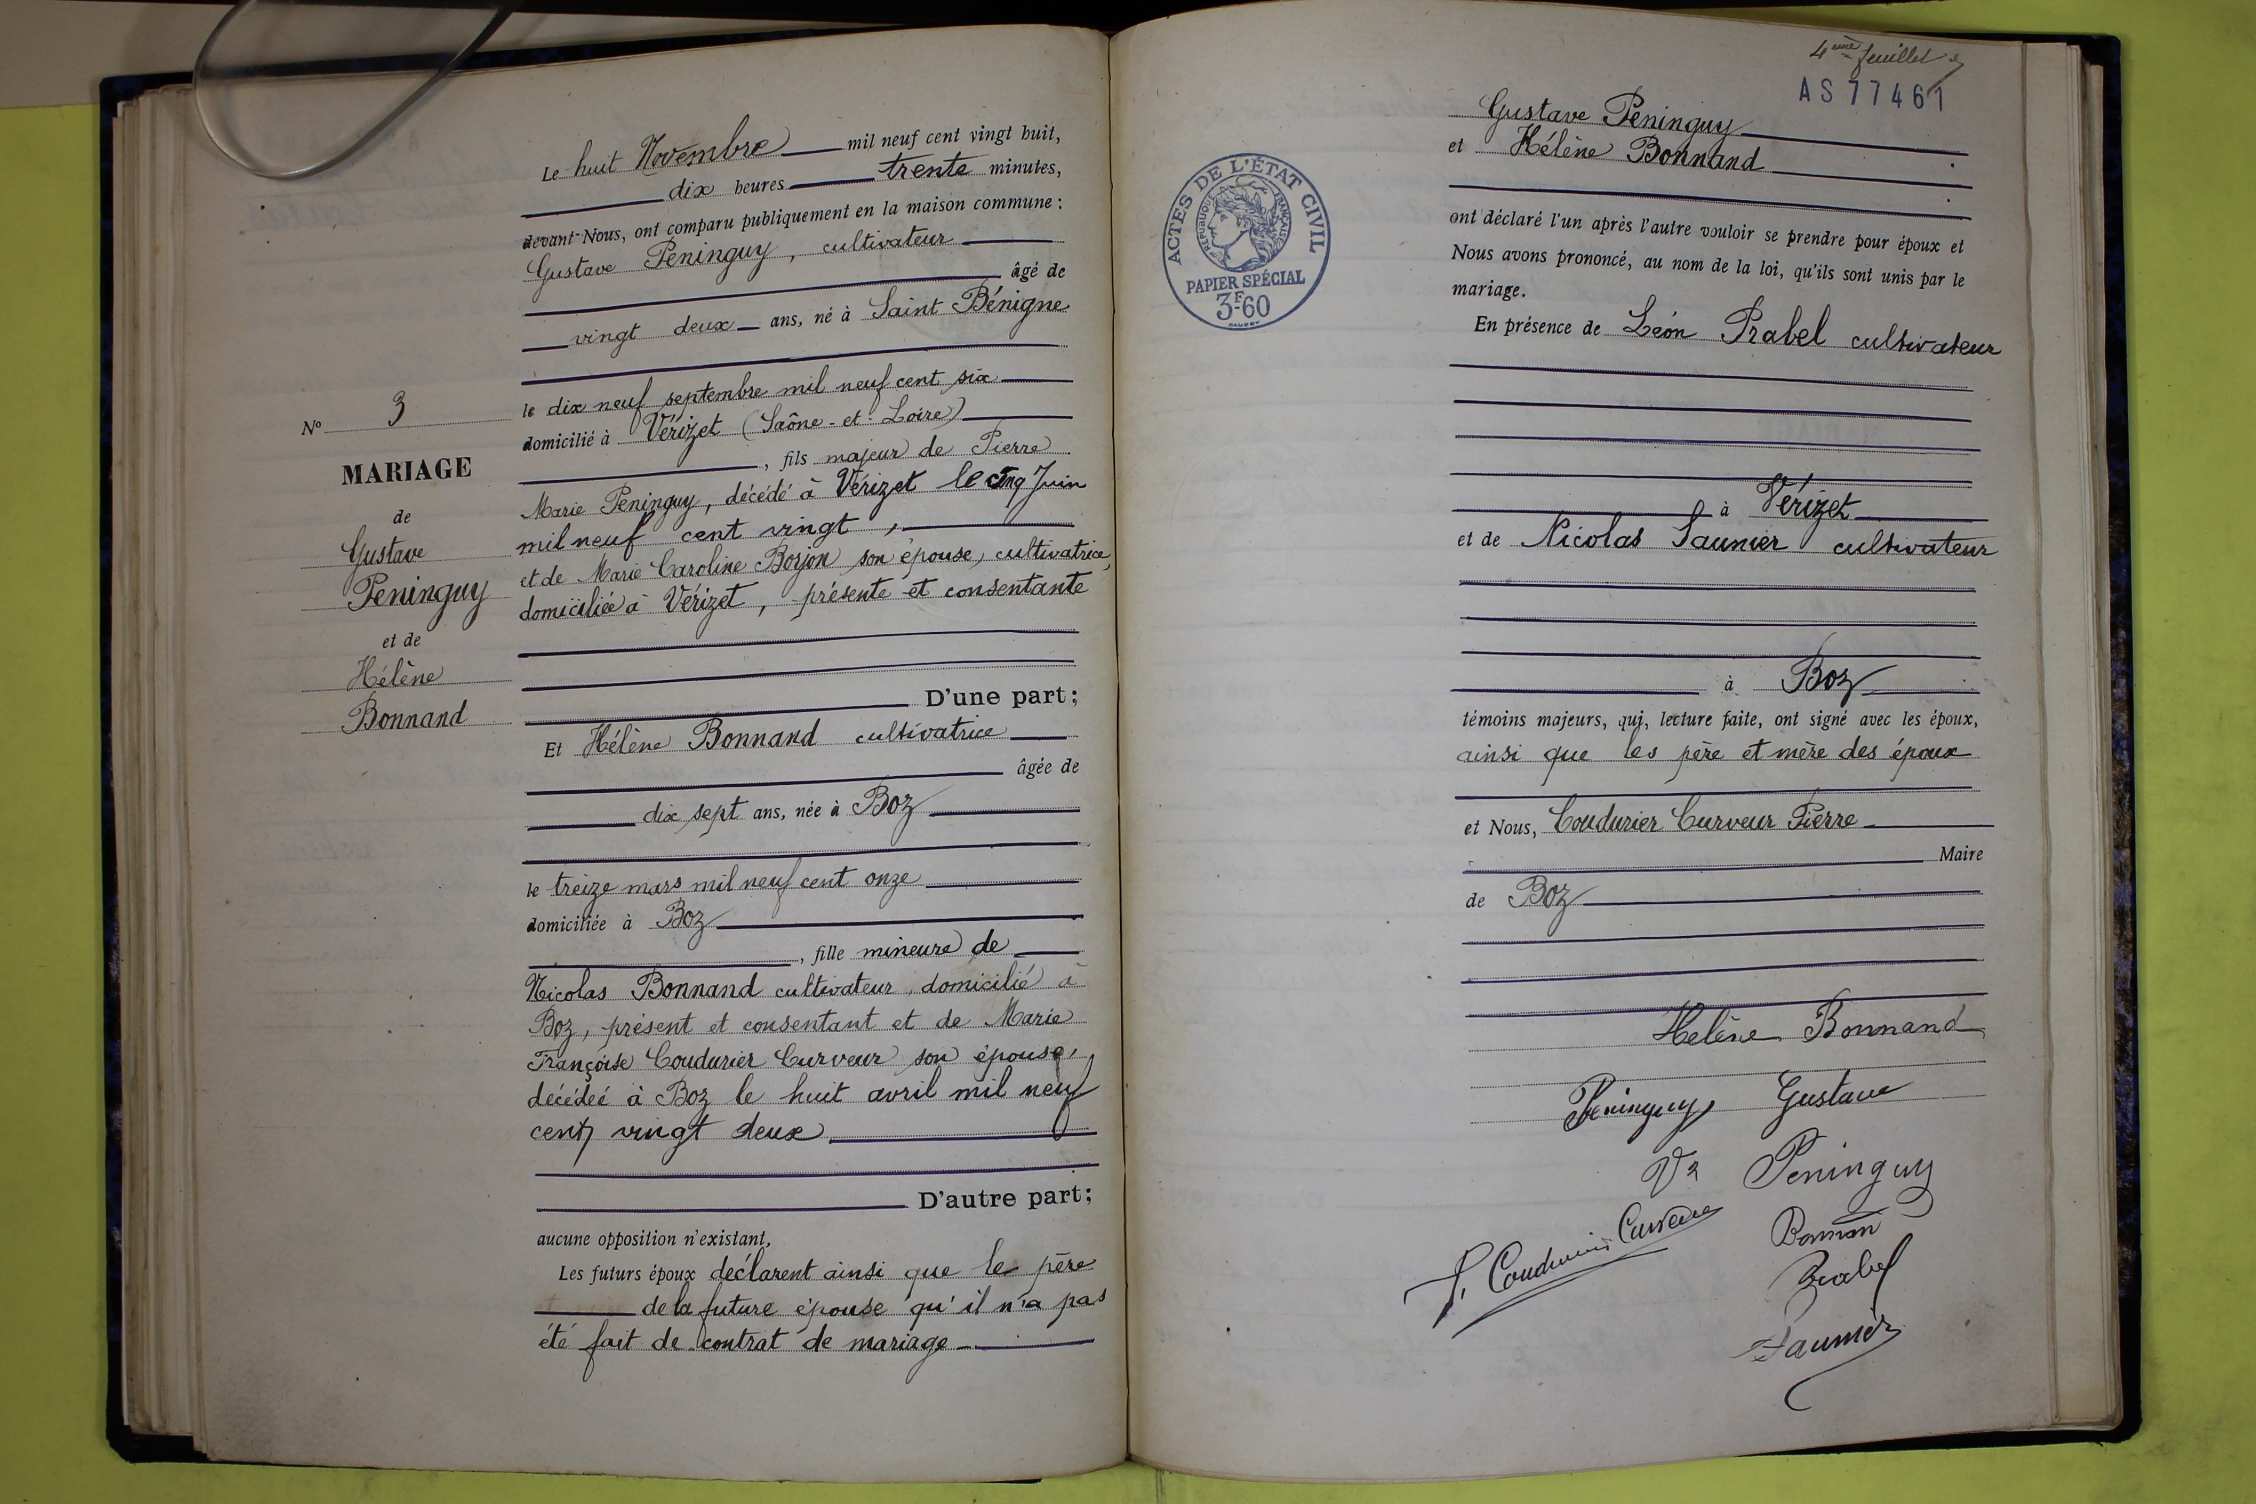 Le huit Novembre mil neuf cent vingt huit,
dix heures trente minutes,
devant Nous, ont comparu publiquement en la maison commune :
Gustave Peninguy, cultivateur
âgé de
vingt deux ans, né à Saint Bénigne
le dix neuf septembre mil neuf cent six
domicilié à Vérizet (Saône-et-Loire)
, fils majeur de Pierre
Marie Peninguy, décédé à Vérizet le cinq Juin
mil neuf cent vingt,
et de Marie Caroline Boyon son épouse, cultivatrice,
domiciliée à Vérizet, présente et consentante
D'une part;
Et Hélène Bonnand cultivatrice
âgée de
dix sept ans, née à Boz
le treize mars mil neuf cent onze
domiciliée à Boz
, fille mineure de
Nicolas Bonnand cultivateur, domicilié à
Boz, présent et consentant et de Marie
Françoise Coudurier Curveur son épouse,
décédeé à Boz le huit avril mil neuf
cent vingt deux
D'autre part;
aucune opposition n'existant,
Les futurs époux déclarent ainsi que le père
de la future épouse qu'il n'a pas
été fait de contrat de mariage
No 3
MARIAGE
de
Gustave
Peninguy
et de
Hélène
Bonnand
4ème feuillet
AS 77461
ACTES DE L'ÉTAT CIVIL
RÉPUBLIQUE FRANÇAISE
PAPIER SPÉCIAL
3F-60
Gustave Peninguy
et Hélène Bonnand
ont déclaré l'un après l'autre vouloir se prendre pour époux et
Nous avons prononcé, au nom de la loi, qu'ils sont unis par le
mariage.
En présence de Léon Prabel cultivateur
à Vérizet
et de Nicolas Saunier cultivateur
à Boz
témoins majeurs, qui, lecture faite, ont signé avec les époux,
ainsi que les père et mère des époux
et Nous, Coudurier Curveur Pierre
Maire
de Boz
Helène Bonnand
Peninguy Gustave
Ve Peninguy
P. Coudurier Curveur
Bonnan
Prabel
Saunier